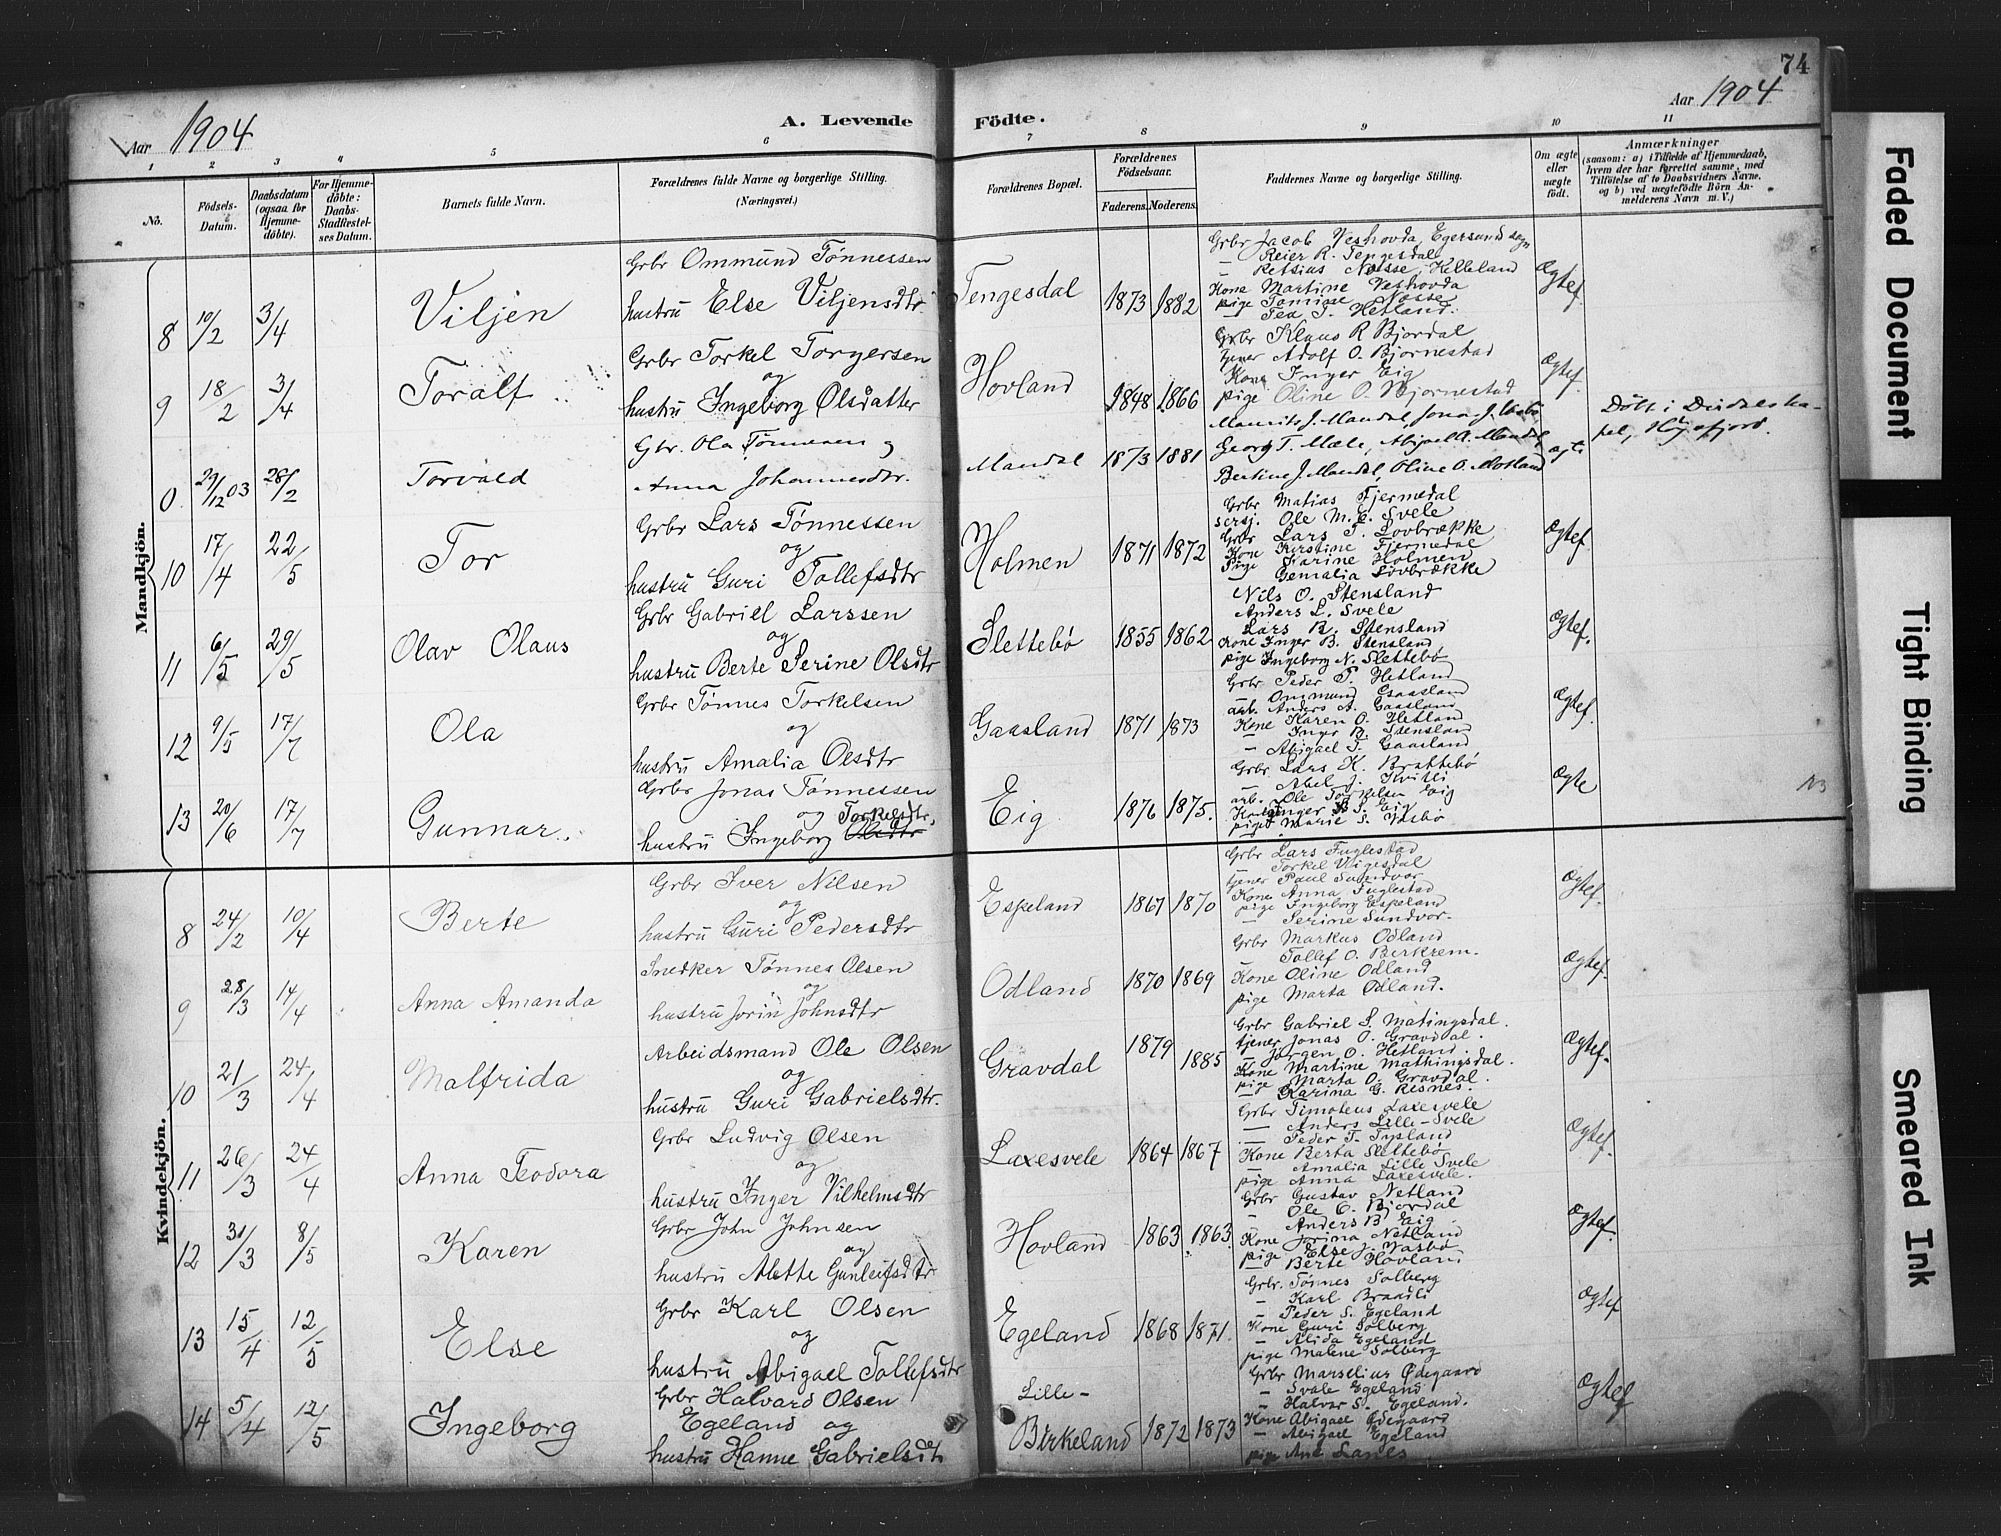 74
Aar 1904
A. Levende Födte.
Aar 1904
1 2 3 4 5 6 7 8 9 10 11
No.
Födsels-Datum.
Daabsdatum (ogsaa for Hjemme-döbte).
For Hjemme-döbte: Daabs-Stadfæstel-ses Datum.
Barnets fulde Navn.
Forældrenes fulde Navne og borgerlige Stilling.
(Næringsvei.)
Forældrenes Bopæl.
Forældrenes Födselsaar.
Faderens. Moderens.
Faddernes Navne og borgerlige Stilling.
Om ægte eller uægte födt.
Anmærkninger
(saasom: a) i Tilfælde af Hjemmedaab,
hvem der har forrettet samme, med
Tilföielse af to Daabsvidners Navne,
og b) ved uægtefödte Börn An-
melderens Navn m. V.)
Mandkjön.
8 10/2 3/4 Viljen
Grbr Ommund Tønnessen
hustru Else Viljensdtr.
Tengesdal 1873 1882
Grbr Jacob Veshovda, Egersund sogn
" Reier R. Tengesdal
" Petsius Nosse, Helleland
Kone Martine Veshovda
pige Tomine Nosse
— Tea T. Hetland.
Ægtef.
9 18/2 3/4 Toralf
Grbr Torkel Torgersen
og
hustru Ingeborg Olsdatter
Hovland 1848 1866
Grbr Klaus R Bjordal
tjener Adolf O. Bjornestad
Kone Inger Eig
pige Oline O. Bjornestad
Ægtef.
0 29/12 03 28/2 Torvald
Gbr. Ola Tønnesen og
Anna Johannesdtr.
Mandal 1873 1881
Maurits J. Mandal, Jonas J.
Georg T. Mæle, Abigael A. Mandal,
Bertine J. Mandal, Oline O. Motland
ægte
Döbt i Dirdals ka-
pel, Høgsfjord.
10 17/4 22/5 Tor
Grbr Lars Tønnessen
og
hustru Guri Tollefsdtr
Holmen 1871 1872
Grbr Matias Fjermedal
sersj. Ole M. E. Svele
Grbr Lars T. Lovbrække
Kone Kirstine Fjermedal
Pige Karine Holmen
— Gemalia Lovbrække
Ægtef.
11 6/5 29/5 Olav Olaus
Grbr Gabriel Larssen
og
hustru Berte Serine Olsdtr
Slettebö 1855 1862
Nils O. Stensland
Anders L. Svele
Lars R. Stensland
Kone Inger B. Stensland
pige Ingeborg N. Slettebø
Ægtef.
12 9/5 17/7 Ola
Grbr Tønnes Torkelsen
og
hustru Amalia Olsdtr
Gaasland 1871 1873
Grbr Peder P. Hetland
— Ommund Gaasland
arb. Anders A. Gaasland
Kone Karen O. Hetland
— Inger B. Stensland
— Abigael T. Gaasland
Ægtef.
13 20/6 17/7 Gunnar.
Grbr Jonas Tønnessen
og Torkelsdtr.
hustru Ingeborg Olsdtr
Eig 1876 1875.
Grbr Lars K. Brattebø
— Abel J. Kvitli
arb. Ole Torkelsen Eig
Kone Inger B. S. Eig
pige Marie S. Vasbø
Ægte
Kvindekjön.
8 24/2 10/4 Berte
Grbr Iver Nilsen
og
hustru Guri Pedersdtr
Espeland 1867 1870
Grbr Lars Fuglestad
Torkel Vigesdal
tjener Paul Sundvor
Kone Anna Fuglestad
pige Ingeborg Espeland
— Serine Sundvor
Ægtef.
9 28/3 14/4 Anna Amanda
Snedker Tønnes Olsen
og
hustru Jorin Johnsdtr
Odland 1870 1869
Grbr Markus Odland
Tollef O. Berkrem.
Kone Oline Odland
pige Marta Odland.
Ægtef.
10 21/3 24/4 Malfrida
Arbeidsmand Ole Olsen
og
hustru Guri Gabrielsdtr.
Gravdal 1879 1885
Grbr Gabriel S. Matingsdal.
tjener Jonas O. Gravdal.
— Jörgen O. Hetland.
Kone Martine Mathingsdal.
pige Marta O. Gravdal.
— Karina G. Resnes.
Ægtef.
11 26/3 24/4 Anna Teodora
Grbr Ludvig Olsen
og
hustru Inger Vilhelmsdtr
Laxesvele 1864 1867
Grbr Timoteus Laxesvele
— Anders Lille-Svele
— Peder T. Tysland
Kone Berta Slettebø
— Amalia Lille Svele
pige Anna Laxesvele.
Ægtef.
12 31/3 8/5 Karen
Grbr John Johnsen
og
hustru Alette Gunleifsdtr
Hovland 1863 1863
Grbr Gustav Netland
— Ole O. Bjordal
— Anders B. Eig
Kone Jorina Netland
pige Else J. Vasbø
— Berte Hovland
Ægtef.
13 15/4 12/5 Else
Grbr Karl Olsen
og
hustru Abigael Tollefsdtr
Egeland 1868 1871.
Grbr. Tønnes Solberg
— Karl Braadli
— Peder S. Egeland
Kone Guri Solberg
— Alida Egeland
pige Malene Solberg
Ægtef
14 5/4 12/5 Ingeborg
Grbr Halvard Olsen
Egeland og
hustru Hanne Gabrielsdt
Lille-
Birkeland 1872 1873
Grbr Marselius Ødegaard
— Svale Egeland
— Halvar S. Egeland.
Kone Abigael Ødegaard
— Abigael Egeland
pige Ane Lanes
Ægtef
Faded Document
Tight Binding
Smeared Ink